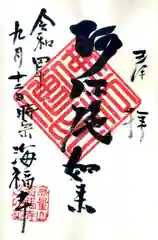 奉拝
阿弥陀如来
令和
九月十二日
時宗 海福寺